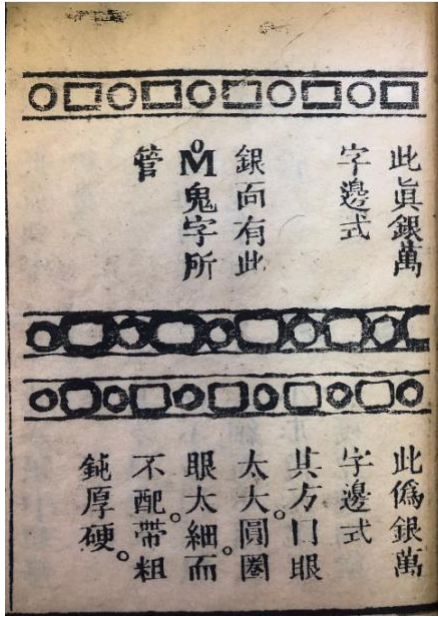 此眞銀萬
字邊式
銀面有此
M̊鬼字所
管
此僞銀萬
字邊式
其方口眼
太大圓圈
眼太細而。
不配帶粗。
鈍厚硬。